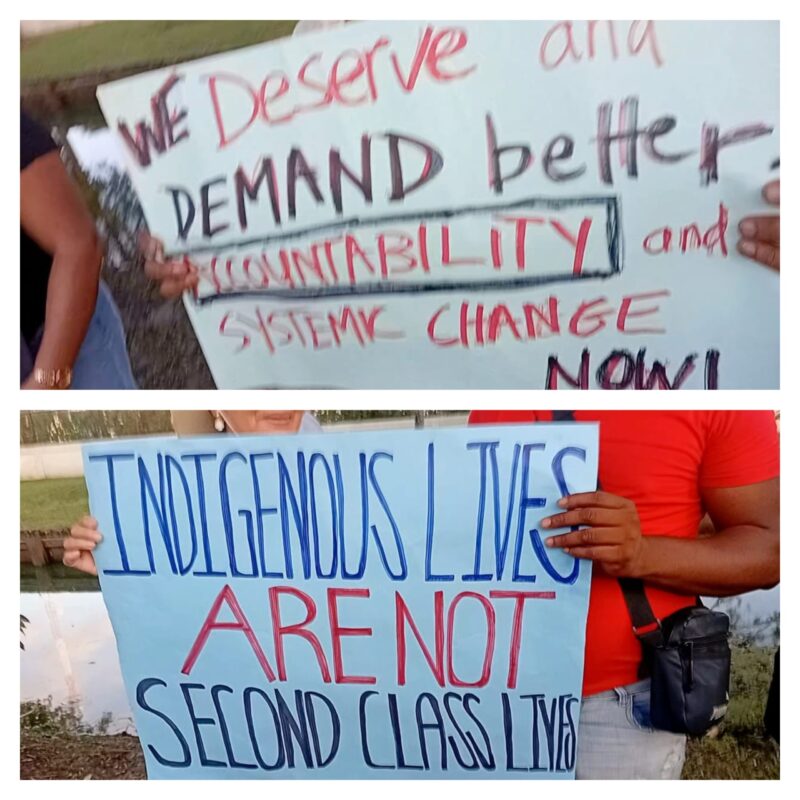 WE Deserve and
DEMAND better.
ACCOUNTABILITY and
SYSTEMIC CHANGE
NOW!
INDIGENOUS LIVES
ARE NOT
SECOND CLASS LIVES